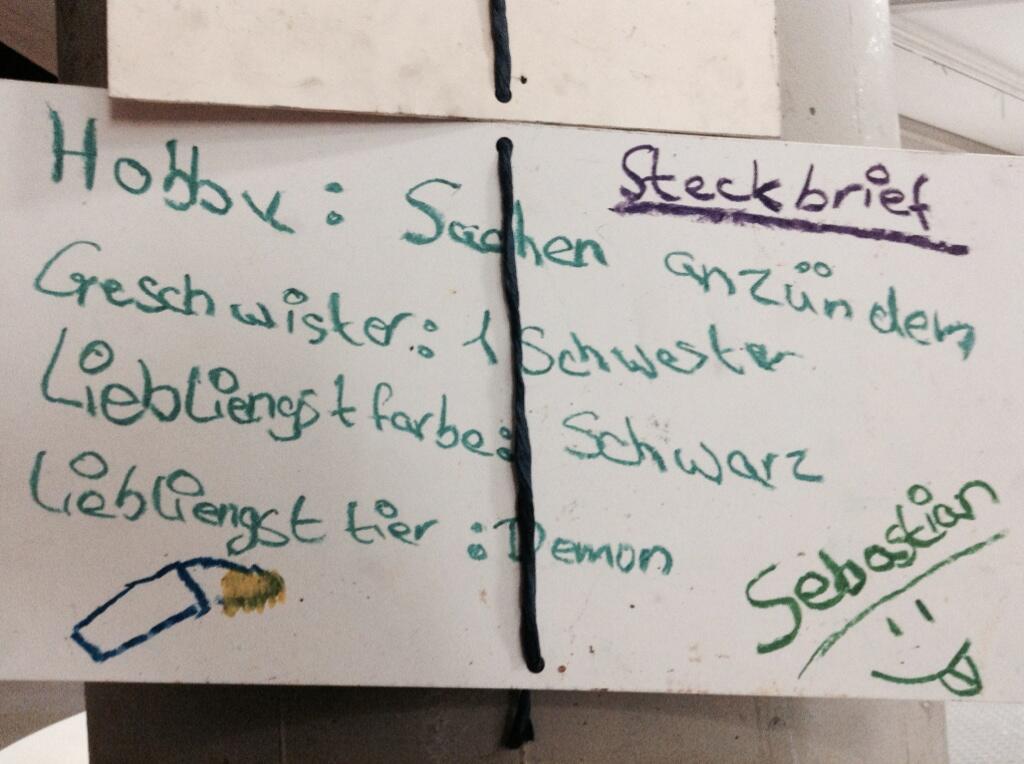 Steckbrief
Hobby: Sachen anzünden
Geschwister: 1 Schwester
Liebliengstfarbe: Schwarz
Liebliengsttier: Demon
Sebastian